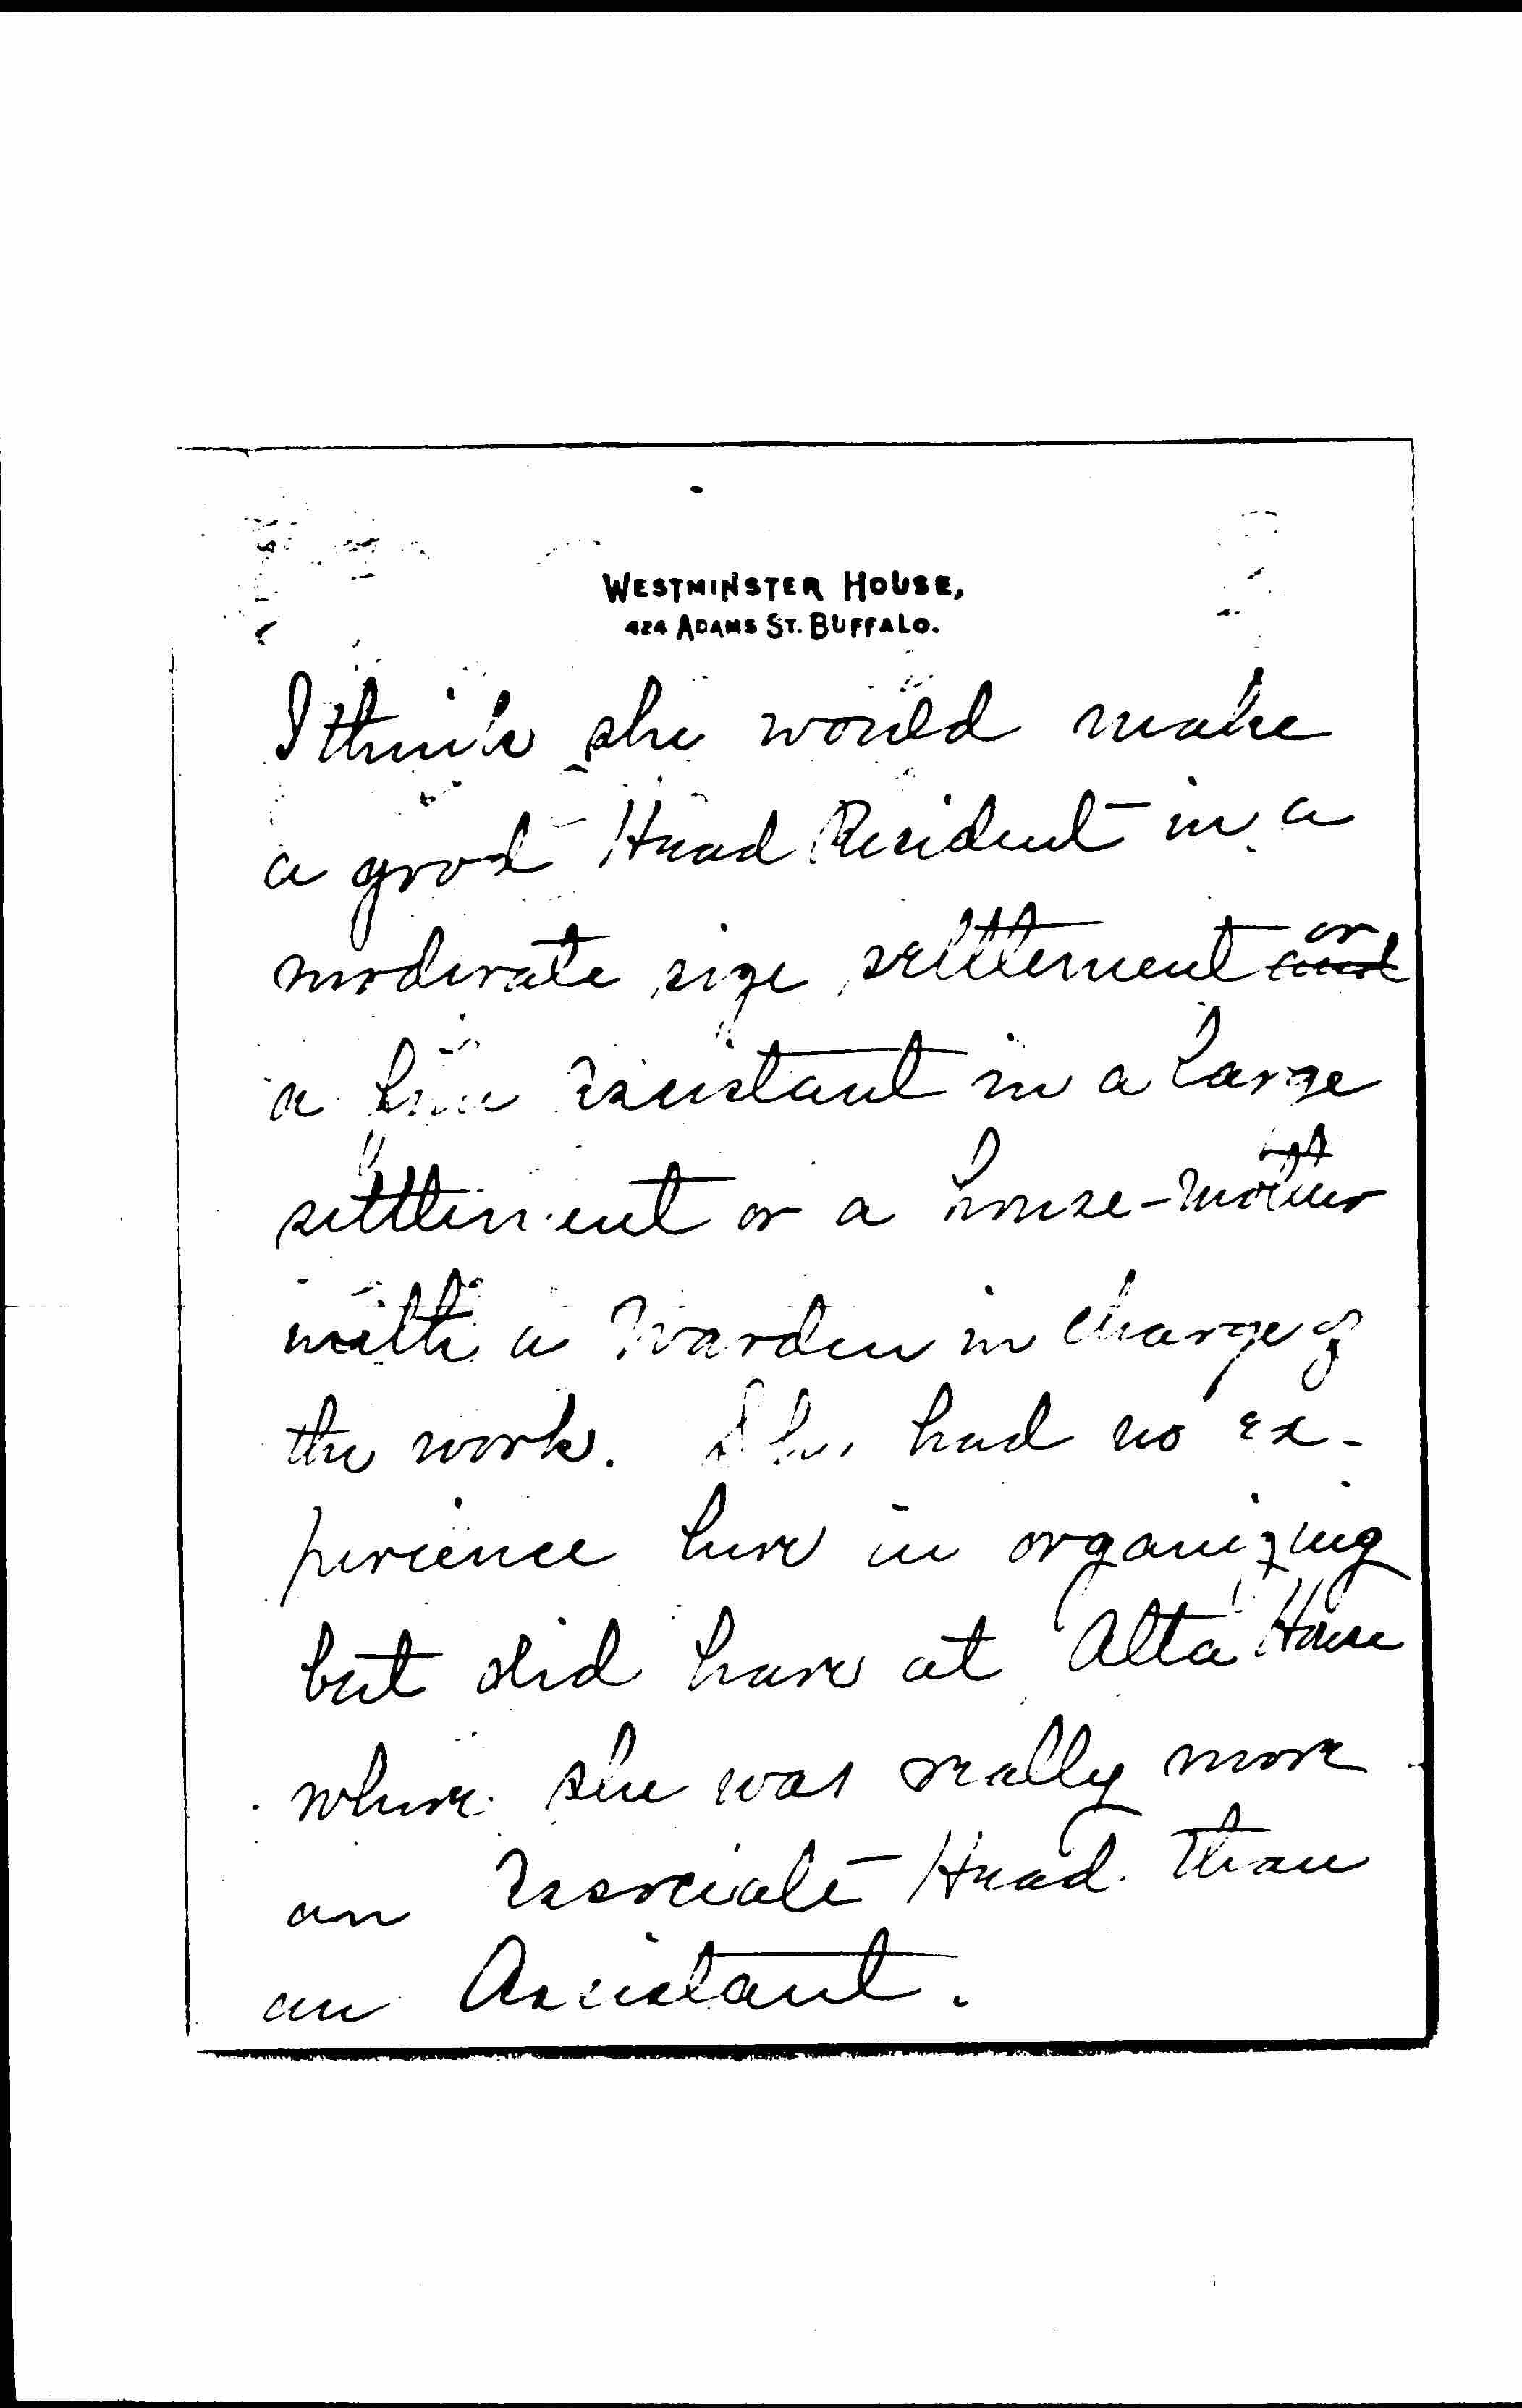 WESTMINSTER HOUSE,
424 ADAMS ST. BUFFALO.
I think she would make
a good Head Resident in a
moderate size settlement and or
a fine Assistant in a large
settlement or a house-mother
with a Warden in charge of
the work. She had no ex-
perience here in organizing
but did have at Alta House
where she was really more
an Associate Head than
an Assistant.